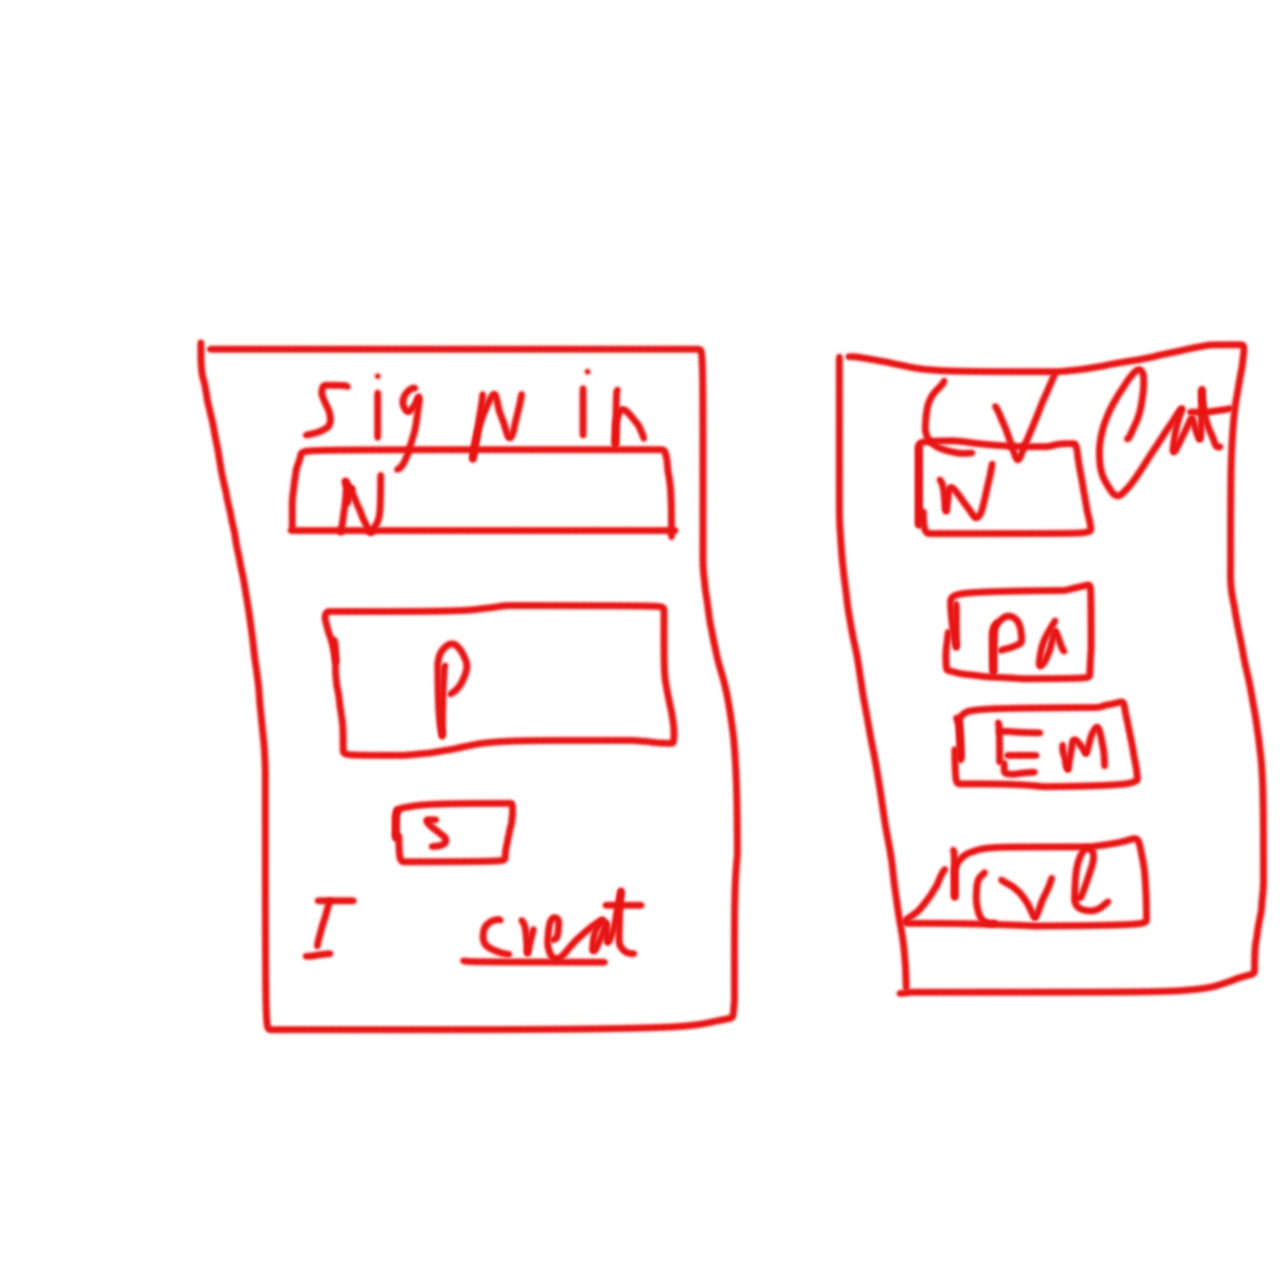 Sign in
N
P
S
I creat
Creat
N
Pa
EM